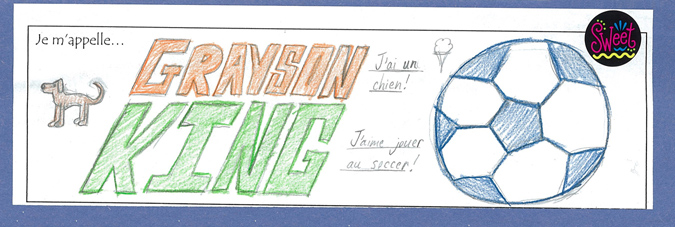 Je m'appelle...
GRAYSON
KING
J'ai un
chien!
J'aime jouer
au soccer!
Sweet